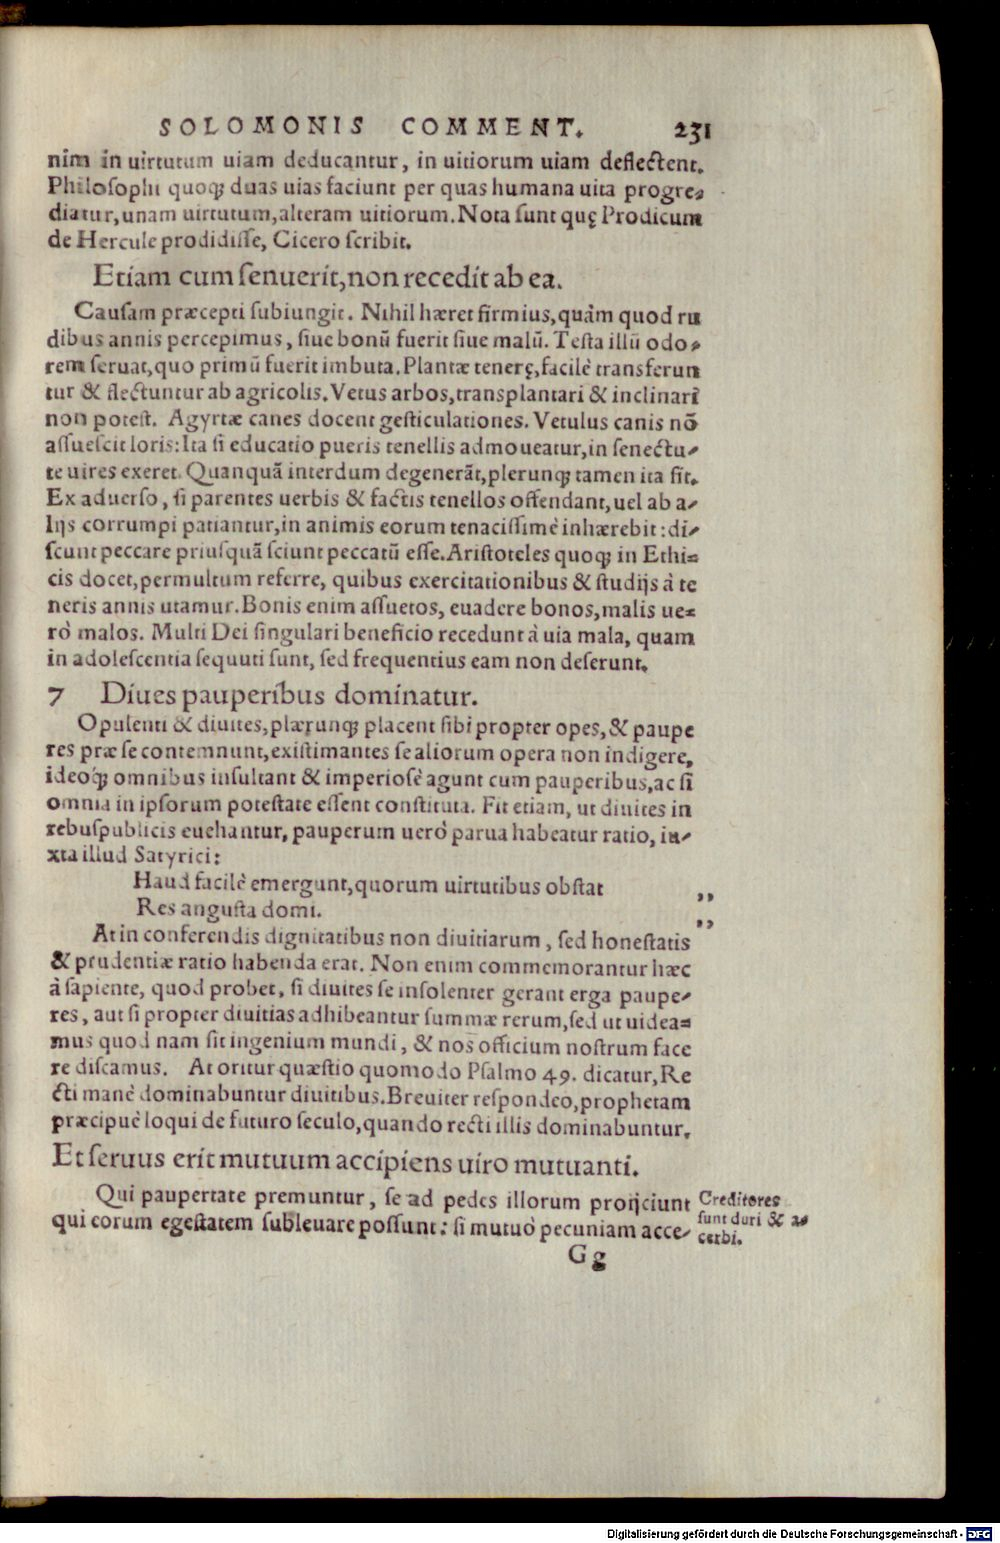 SOLOMONIS COMMENT. 231
nim in uirtutum uiam deducantur, in uitiorum uiam deflectent.
Philosophi quoq; duas uias faciunt per quas humana uita progre-
diatur, unam uirtutum, alteram uitiorum. Nota sunt quę Prodicum
de Hercule prodidisse, Cicero scribit.
Etiam cum senuerit, non recedit ab ea.
Causam præcepti subiungit. Nihil hæret firmius, quàm quod ru
dibus annis percepimus, siue bonũ fuerit siue malũ. Testa illũ odo-
rem seruat, quo primũ fuerit imbuta. Plantæ tenerę, facilè transferun
tur & flectuntur ab agricolis. Vetus arbos, transplantari & inclinari
non potest. Agyrtæ canes docent gesticulationes. Vetulus canis nõ
assuescit loris: Ita si educatio pueris tenellis admoueatur, in senectu-
te uires exeret. Quanquã interdum degenerãt, plerunq; tamen ita fit.
Ex aduerso, si parentes uerbis & factis tenellos offendant, uel ab a-
lijs corrumpi patiantur, in animis eorum tenacissimè inhærebit: di-
scunt peccare priusquã sciunt peccatũ esse. Aristoteles quoq; in Ethi-
cis docet, permultum referre, quibus exercitationibus & studijs à te
neris annis utamur. Bonis enim assuetos, euadere bonos, malis ue-
rò malos. Multi Dei singulari beneficio recedunt à uia mala, quam
in adolescentia sequuti sunt, sed frequentius eam non deserunt.
7 Diues pauperibus dominatur.
Opulenti & diuites, plærunq; placent sibi propter opes, & paupe
res præ se contemnunt, existimantes se aliorum opera non indigere,
ideoq́; omnibus insultant & imperiosè agunt cum pauperibus, ac si
omnia in ipsorum potestate essent constituta. Fit etiam, ut diuites in
rebuspublicis euehantur, pauperum uerò parua habeatur ratio, iu-
xta illud Satyrici:
Haud facilè emergunt, quorum uirtutibus obstat ,,
Res angusta domi. ,,
At in conferendis dignitatibus non diuitiarum, sed honestatis
& prudentiæ ratio habenda erat. Non enim commemorantur hæc
à sapiente, quod probet, si diuites se insolenter gerant erga paupe-
res, aut si propter diuitias adhibeantur summæ rerum, sed ut uidea-
mus quod nam sit ingenium mundi, & nos officium nostrum face
re discamus. At oritur quæstio quomodo Psalmo 49. dicatur, Re
cti manè dominabuntur diuitibus. Breuiter respondeo, prophetam
præcipuè loqui de futuro seculo, quando recti illis dominabuntur.
Et seruus erit mutuum accipiens uiro mutuanti.
Qui paupertate premuntur, se ad pedes illorum proijciunt
qui eorum egestatem subleuare possunt: si mutuò pecuniam acce-
Creditores
sunt duri & a-
cerbi.
Gg
Digitalisierung gefördert durch die Deutsche Forschungsgemeinschaft - DFG